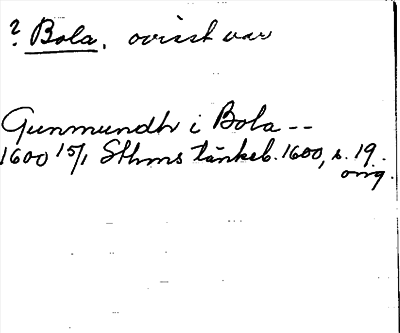 ? Bola. ovisst var
Gunmundh i Bola --
1600 15/1 Sthms tänkeb. 1600, s. 19.
orig.